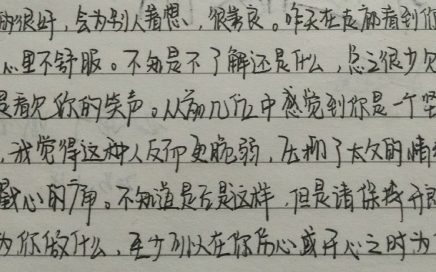 的很好，会为别人着想，很善良。昨天在走廊看到你
心里不舒服。不知是不了解还是什么，总之很少见
是看见你的笑声。从前几位中感觉到你是一个坚
，我觉得这种人反而更脆弱，压抑了太多的情绪
戳心的痛。不知道是否是这样，但是请保持开朗
为你做什么，至少可以在你伤心或开心之时为